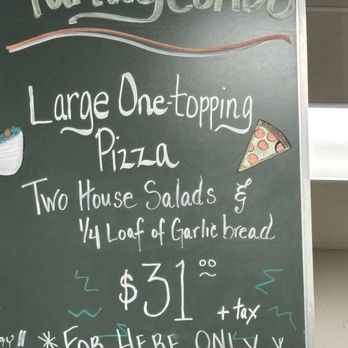 Combo
Large One-topping
Pizza
Two House Salads &
1/4 Loaf of Garlic bread
$31.00
+ tax
* FOR HERE ONLY *